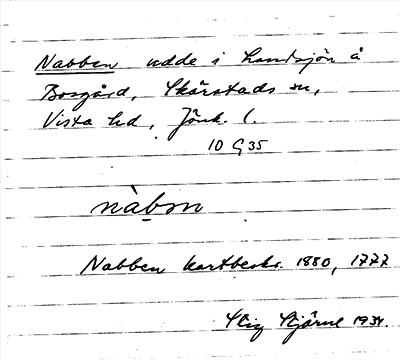 Nabben udde i Landsjön å
Bosgård, Skärstads sn,
Vista hd, Jönk. l.
10 G 35
nàbm
Nabben kartbeskr. 1880, 1777
Stig Stjärne 1934.